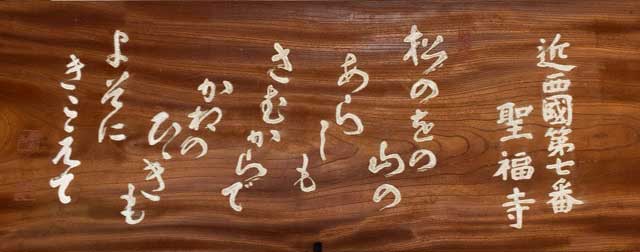 近西國第七番
聖福寺
松のをの
山の
あらしも
さむからで
かねの
ひゞきも
よそに
きこえて